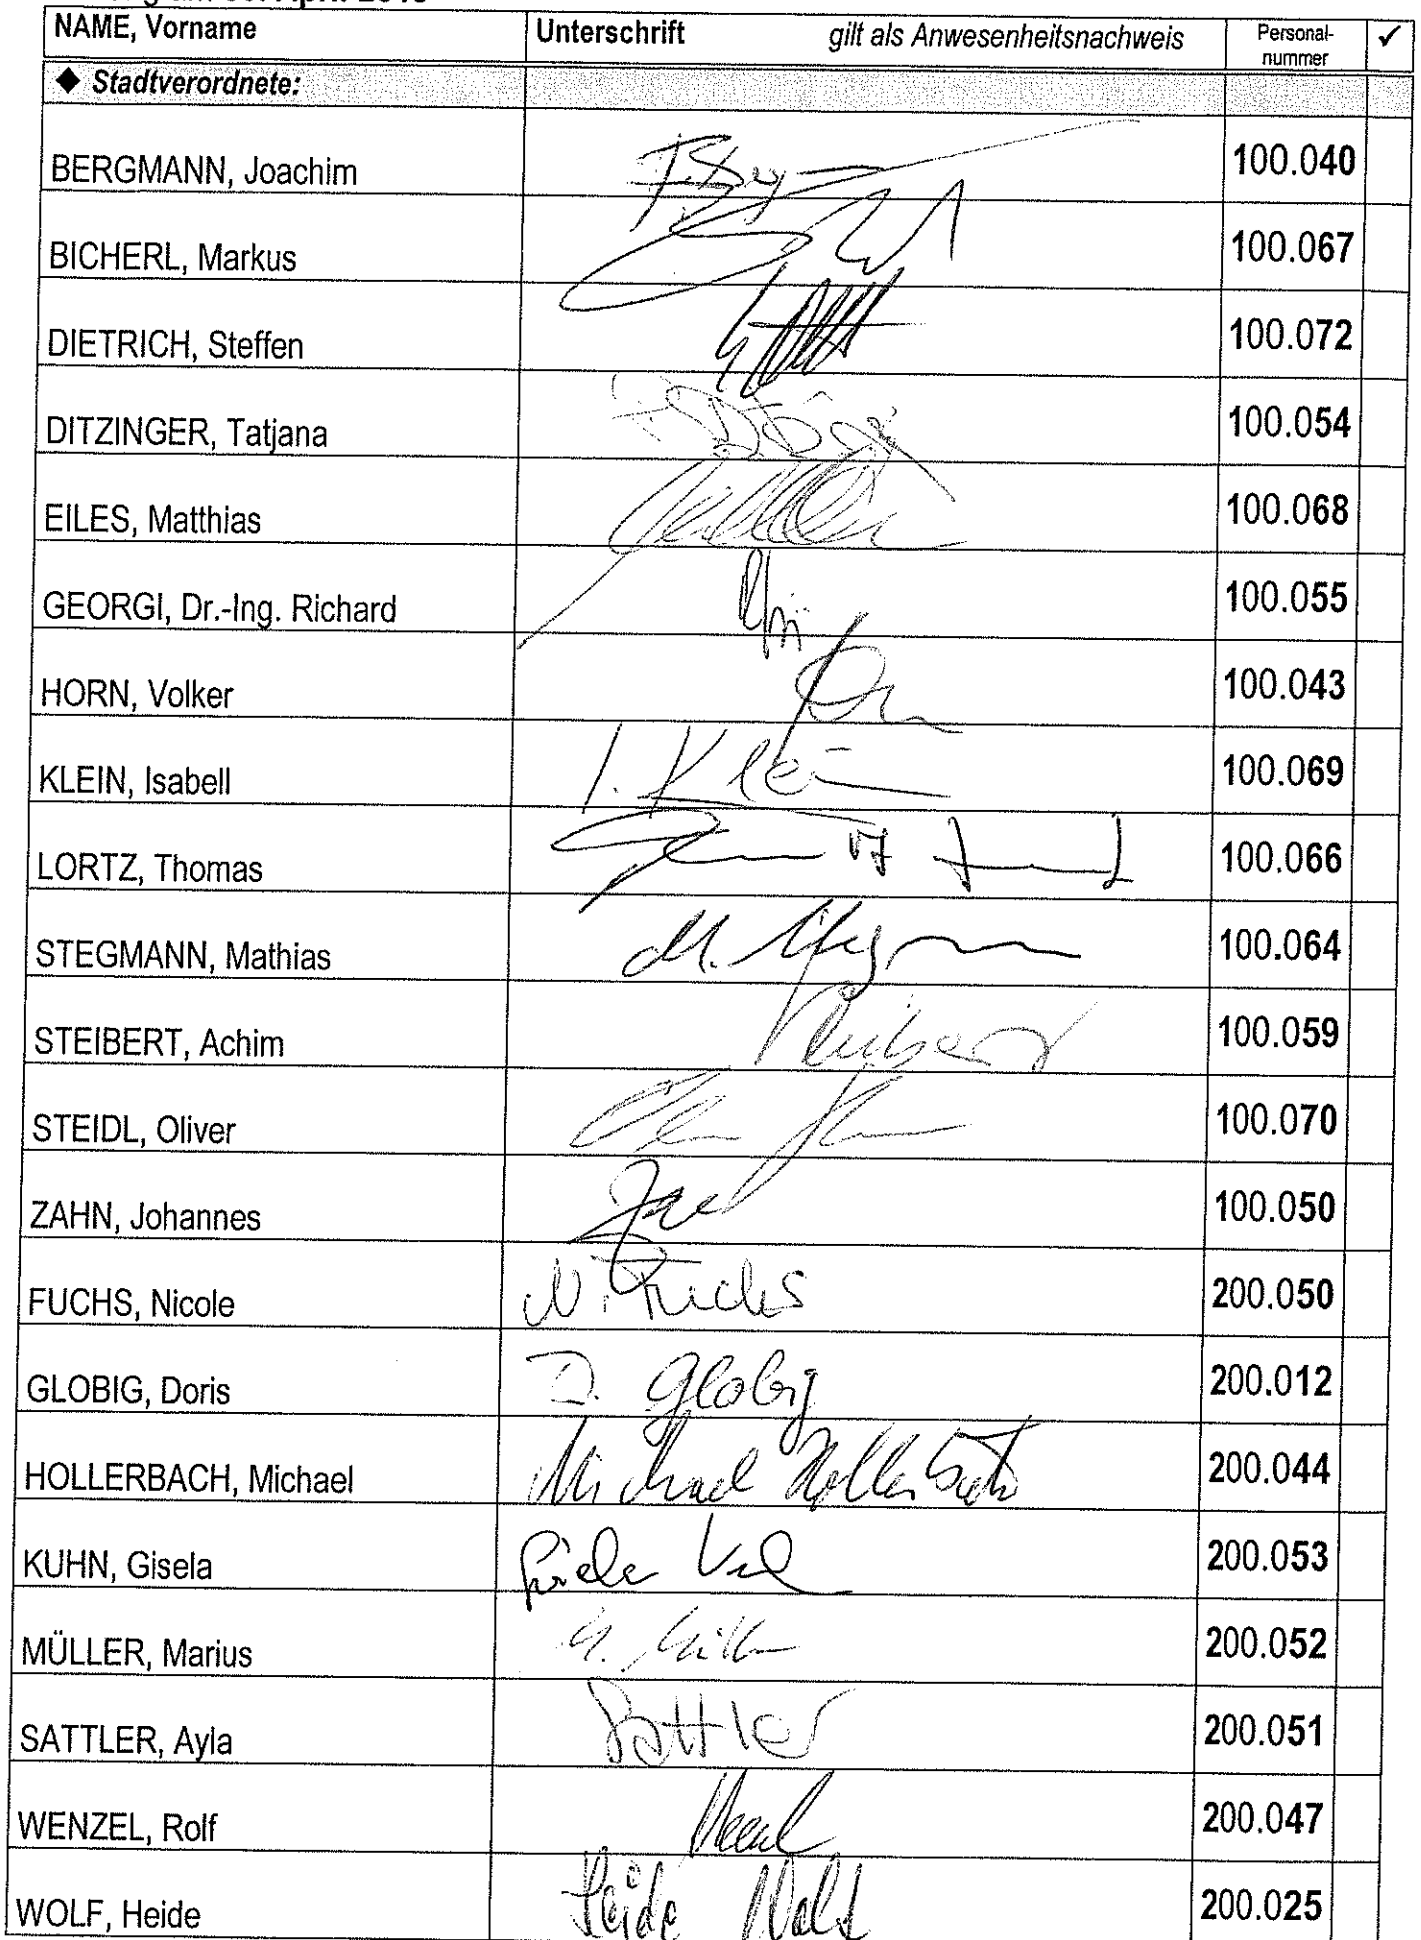 NAME, Vorname Unterschrift gilt als Anwesenheitsnachweis Personal-nummer ✓
◆ Stadtverordnete:
BERGMANN, Joachim 100.040
BICHERL, Markus 100.067
DIETRICH, Steffen 100.072
DITZINGER, Tatjana 100.054
EILES, Matthias 100.068
GEORGI, Dr.-Ing. Richard 100.055
HORN, Volker 100.043
KLEIN, Isabell I. Klein 100.069
LORTZ, Thomas 100.066
STEGMANN, Mathias M. Stegmann 100.064
STEIBERT, Achim Steibert 100.059
STEIDL, Oliver 100.070
ZAHN, Johannes Zahn 100.050
FUCHS, Nicole N. Fuchs 200.050
GLOBIG, Doris D. Globig 200.012
HOLLERBACH, Michael Michael Hollerbach 200.044
KUHN, Gisela Gisela Kuhn 200.053
MÜLLER, Marius M. Müller 200.052
SATTLER, Ayla Sattler 200.051
WENZEL, Rolf Wenzel 200.047
WOLF, Heide Heide Wolf 200.025